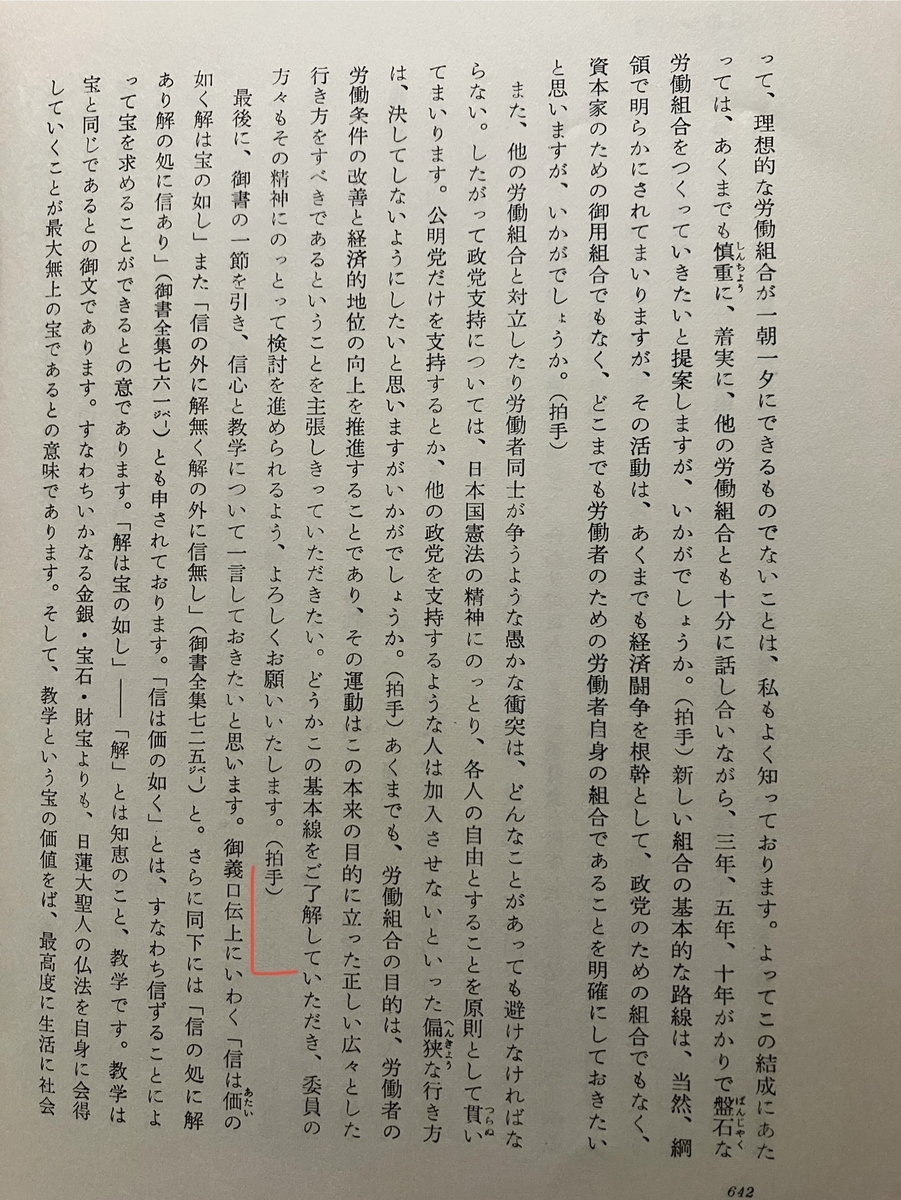 って、理想的な労働組合が一朝一夕にできるものでないことは、私もよく知っております。よってこの結成にあた
っては、あくまでも慎重に、着実に、他の労働組合とも十分に話し合いながら、三年、五年、十年がかりで盤石な
しんちょう
ばんじゃく
労働組合をつくっていきたいと提案しますが、いかがでしょうか。（拍手）新しい組合の基本的な路線は、当然、綱
領で明らかにされてまいりますが、その活動は、あくまでも経済闘争を根幹として、政党のための組合でもなく、
資本家のための御用組合でもなく、どこまでも労働者のための労働者自身の組合であることを明確にしておきたい
と思いますが、いかがでしょうか。（拍手）
また、他の労働組合と対立したり労働者同士が争うような愚かな衝突は、どんなことがあっても避けなければな
らない。したがって政党支持については、日本国憲法の精神にのっとり、各人の自由とすることを原則として貫い
つらぬ
てまいります。公明党だけを支持するとか、他の政党を支持するような人は加入させないといった偏狭な行き方
へんきょう
は、決してしないようにしたいと思いますがいかがでしょうか。（拍手）あくまでも、労働組合の目的は、労働者の
労働条件の改善と経済的地位の向上を推進することであり、その運動はこの本来の目的に立った正しい広々とした
行き方をすべきであるということを主張しきっていただきたい。どうかこの基本線をご了解していただき、委員の
方々もその精神にのっとって検討を進められるよう、よろしくお願いいたします。（拍手）
最後に、御書の一節を引き、信心と教学について一言しておきたいと思います。御義口伝上にいわく「信は価の
あたい
如く解は宝の如し」また「信の外に解無く解の外に信無し」（御書全集七二五㌻）と。さらに同下には「信の処に解
あり解の処に信あり」（御書全集七六一㌻）とも申されております。「信は価の如く」とは、すなわち信ずることによ
って宝を求めることができるとの意であります。「解は宝の如し」――「解」とは知恵のこと、教学です。教学は
宝と同じであるとの御文であります。すなわちいかなる金銀・宝石・財宝よりも、日蓮大聖人の仏法を自身に会得
していくことが最大無上の宝であるとの意味であります。そして、教学という宝の価値をば、最高度に生活に社会
642